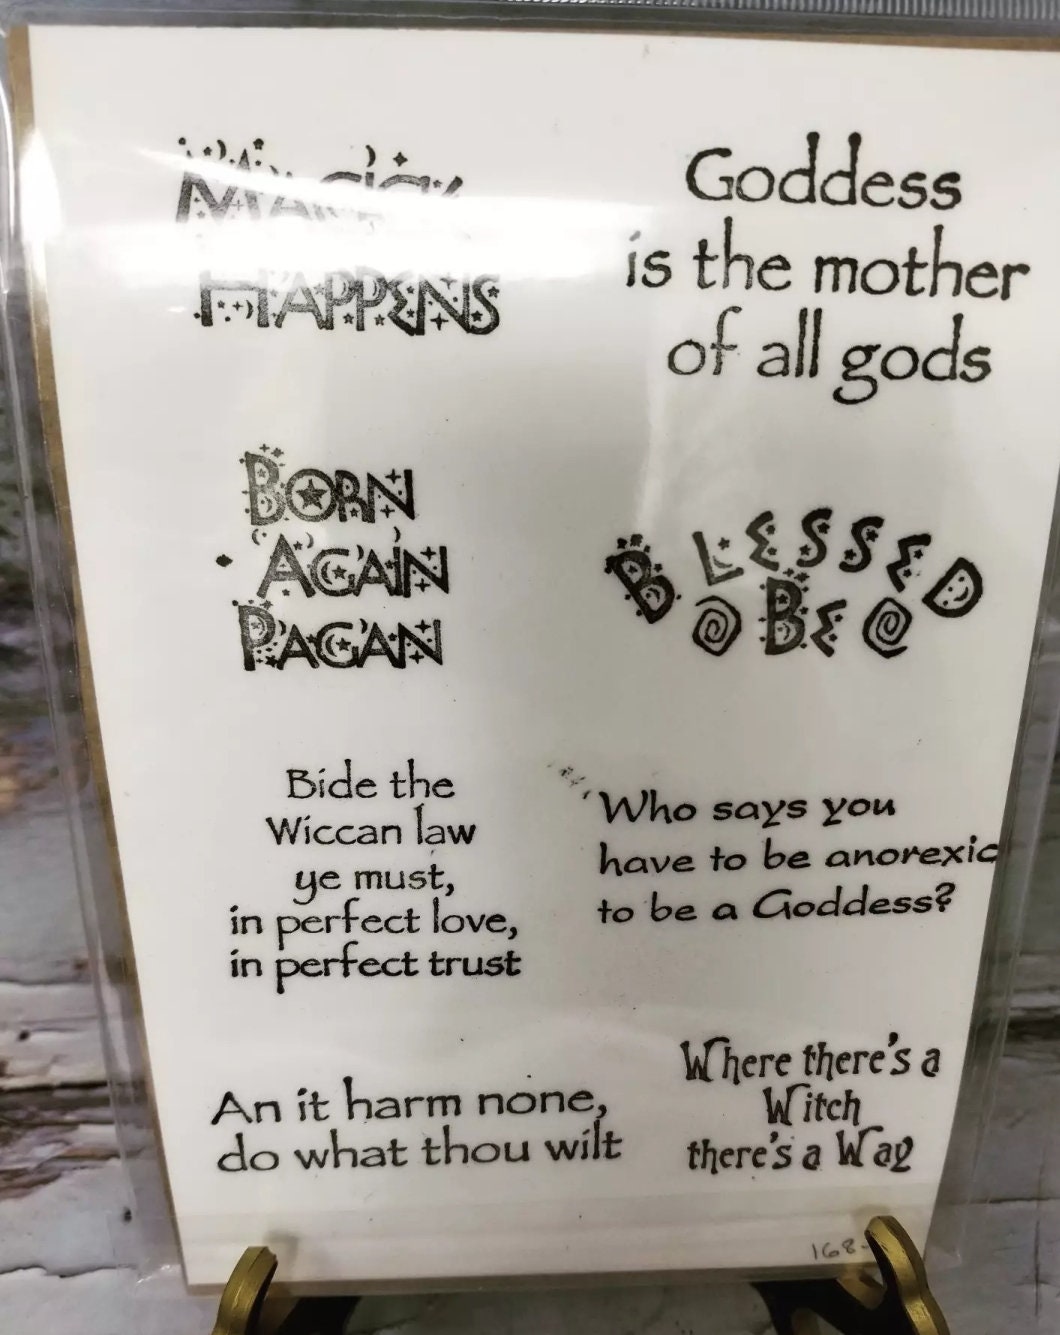 Magick
Happens
Goddess
is the mother
of all gods
Born
Again
Pagan
Blessed
Be
Bide the
Wiccan law
ye must,
in perfect love,
in perfect trust
Who says you
have to be anorexic
to be a Goddess?
An it harm none,
do what thou wilt
Where there's a
Witch
there's a Way
168-